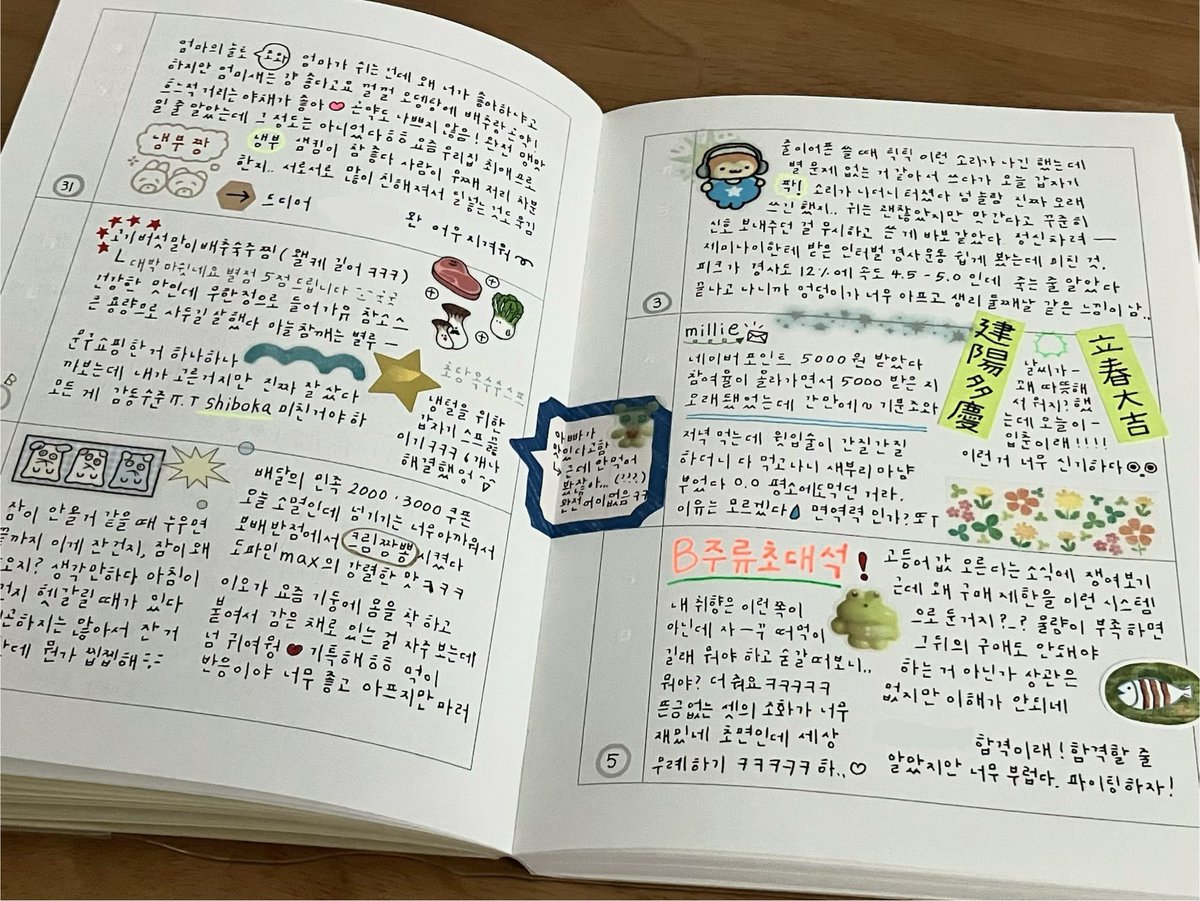 엄마의 놀토 조와 엄마가 쉬는 건데 왜 너가 좋아하냐고
하지만 엄미새는 감 좋다고요 껄껄 오뎅탕에 배추랑 곤약!
흐느적거리는 야채가 좋아 곤약도 나쁘지 않음! 완전 맹맛
일 줄 알았는데 그 정도는 아니었다 ㅎㅎ 요즘 우리집 최애 프로
냉부 짱
냉부 샘킴이 참 좋다 사람이 우째 저리 차분
한지.. 서로서로 많이 친해져서 일낳는 것도 웃김
31
→ 드디어
완 어우 지겨워
고기버섯말이배추숙주찜 ( 왤케 길어 ㅋㅋㅋ )
ㄴ 대박 마싯네요 별점 5점 드립니다
건강한 맛인데 무한적으로 들어가유 참소스
큰 용량으로 사두길 잘했다 마늘참깨는 별루 ㅡ
문구쇼핑한 거 하나하나
까보는데 내가 고른거지만 진짜 잘 샀다
모든 게 감동수준 ㅠ.ㅜ shiboka 미친거야 하
초당옥수수스프
냉털을 위한
갑자기 스프 끓
이기 ㅋㅋㅋ 6개나
해결했엉
잠이 안올거 같을 때 누우면
끝까지 이게 잔건지, 잠이 왜
오지? 생각만하다 아침이
건지 헷갈릴 때가 있다
곤하지는 않아서 잔 거
같은데 뭔가 찝찝해
배달의 민족 2000, 3000 쿠폰
오늘 소멸인데 넘기기는 너무 아까워서
모배반점에서 크림짬뽕 시켰다
도파민 max의 강렬한 맛 ㅋㅋㅋ
이오가 요즘 기둥에 몸을 착 하고
붙여서 감은 채로 있는 걸 자주 보는데
넘 귀여웡 기특해 ㅎㅎ 먹이
반응이야 너무 좋고 아프지만 마러
아빠가
맛있다고함
근데 안 먹어
봤잖아... (???)
완전 어이없음 ㅋㅋ
줄이어폰 쓸 때 틱틱 이런 소리가 나긴 했는데
별 문제 없는 거 같아서 쓰다가 오늘 갑자기
팍! 소리가 나더니 터졌다 넘 놀람 진짜 오래
쓰긴 했지.. 귀는 괜찮았지만 망간다고 꾸준히
신호 보내주던 걸 무시하고 쓴 게 바보같았다. 정신차려 ㅡ
제미나이한테 받은 인터벌 경사운동 쉽게 봤는데 미친 것.
피크가 경사도 12%에 속도 4.5 - 5.0 인데 죽는 줄 알았다
끝나고 나니까 엉덩이가 너무 아프고 생리 둘째날 같은 느낌이 남..
3
millie
네이버 포인트 5000원 받았다
참여율이 올라가면서 5000 받은 지
오래됐었는데 간만에~ 기분조와
建陽多慶
立春大吉
날씨가-
꽤 따뜻해
서 뭐지? 했
는데 오늘이-
입춘이래!!!!
이런거 너무 신기하다
저녁 먹는데 윗입술이 간질간질
하더니 다 먹고나니 새부리마냥
부었다 0.0 평소에도먹던 거라.
이유는 모르겠다 면역력 인가? 또 ㅜ
B주류초대석!
내 취향은 이런 쪽이
아닌데 자ㅡ꾸 떠먹이
길래 뭐야 하고 숨갈 떠보니..
뭐야? 더 줘요 ㅋㅋㅋㅋㅋ
뜬금없는 셋의 조화가 너무
재밌네 초면인데 세상
무례하기 ㅋㅋㅋㅋㅋ 하..♡
5
고등어값 오른다는 소식에 쟁여보기
근데 왜 구매 제한을 이런 시스템
으로 둔거지?_? 물량이 부족하면
그 위의 구매도 안돼야
하는 거 아닌가 상관은
없지만 이해가 안되네
합격이래! 합격할 줄
알았지만 너무 부럽다. 파이팅하자!